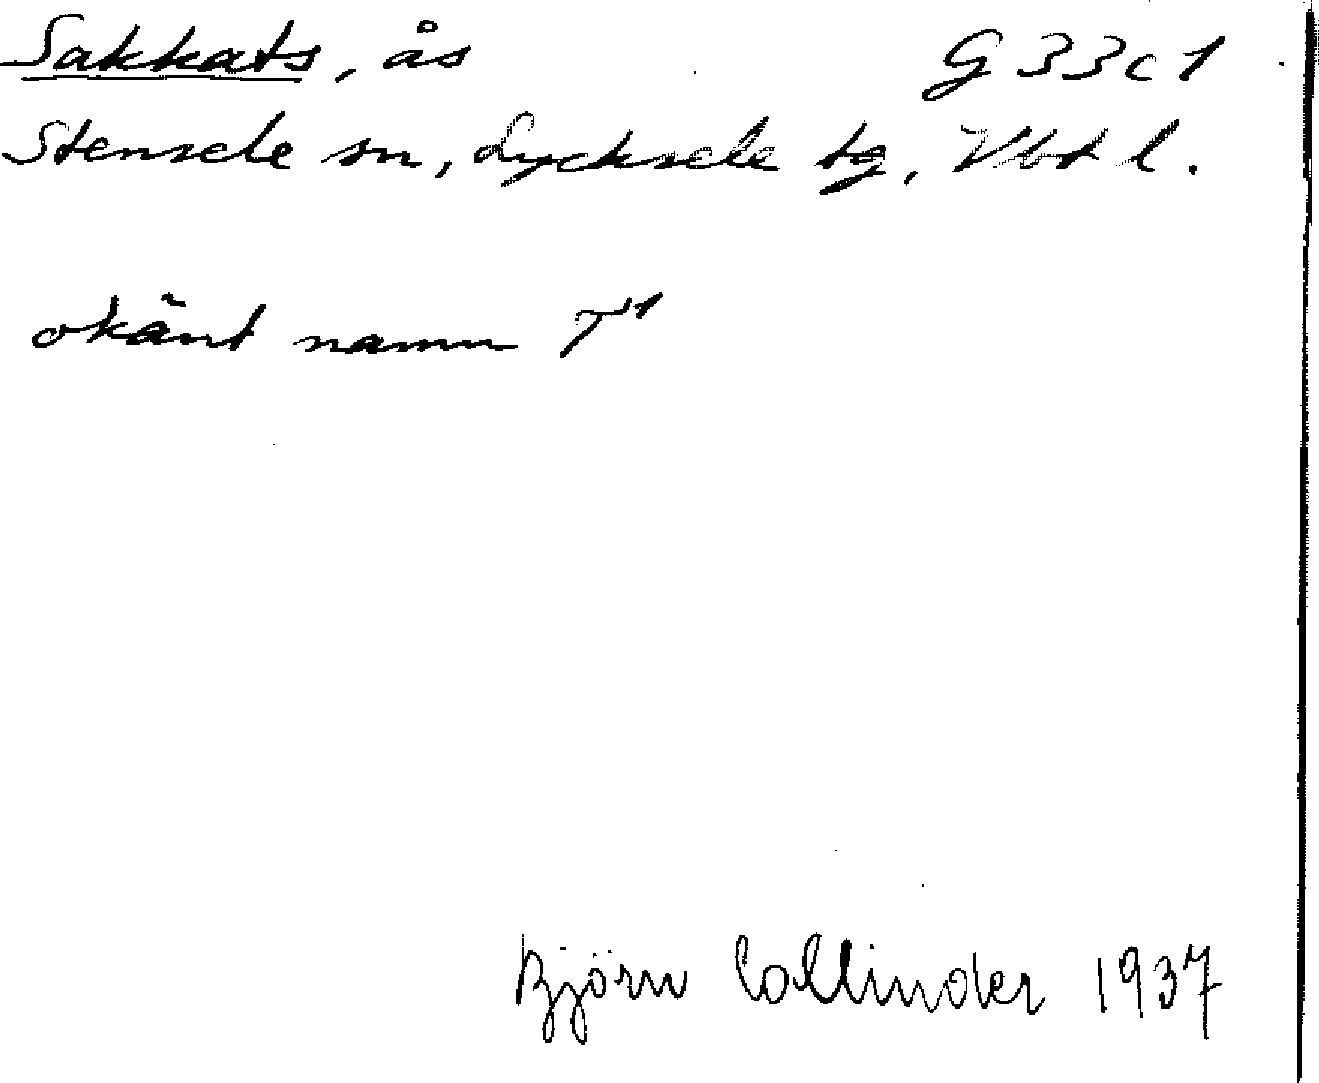 Sakkats, ås G 33 c 1
Stensele sn, Lycksele tg, Vbt l.
okänt namn T¹
Björn Collinder 1937